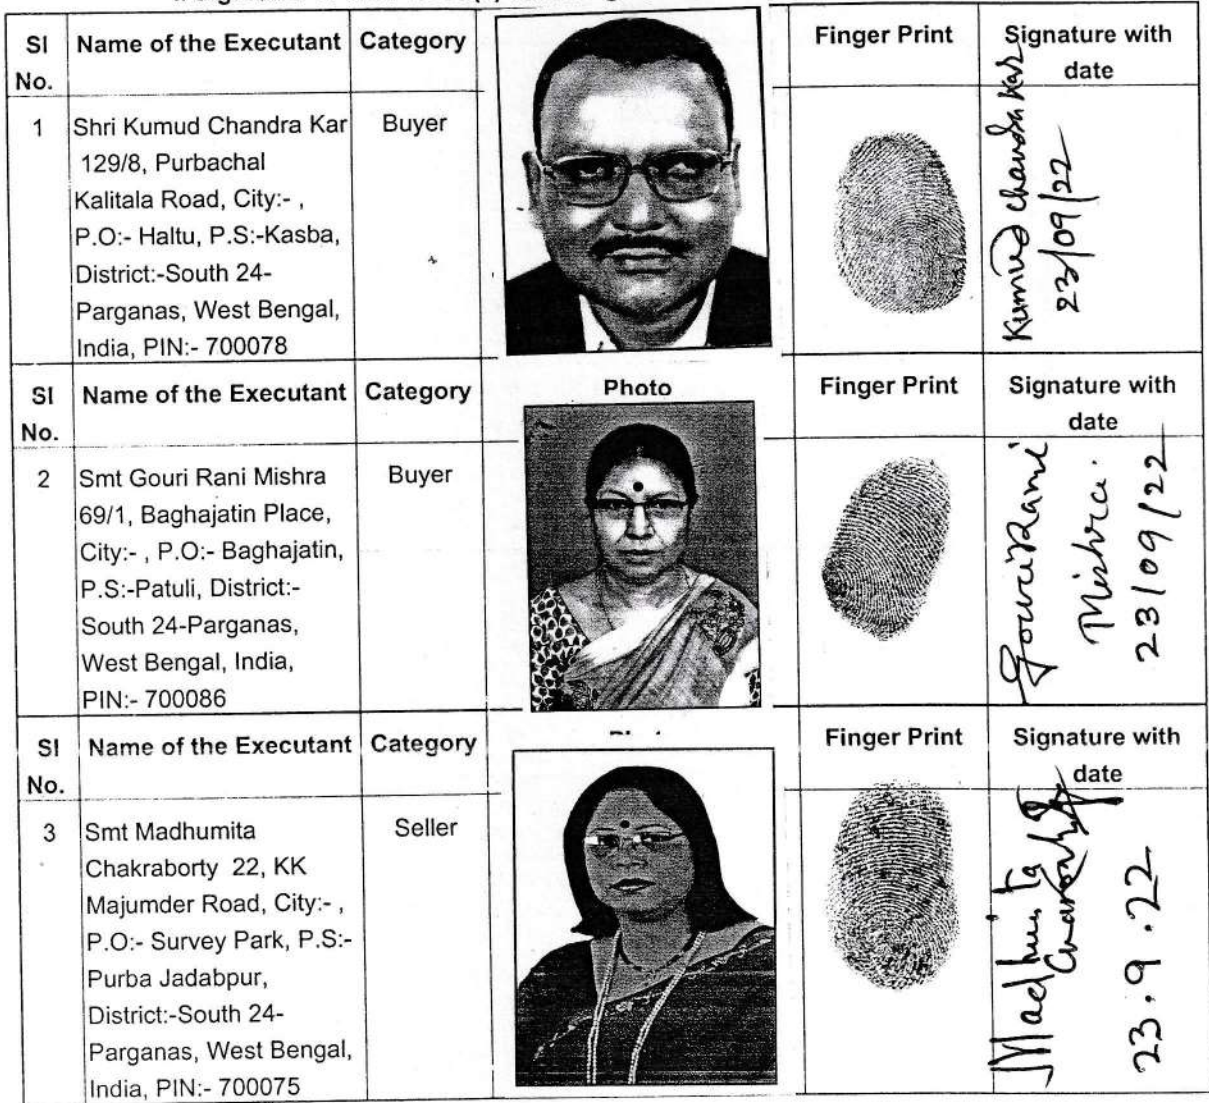 Sl No. Name of the Executant Category Finger Print Signature with date
1 Shri Kumud Chandra Kar Buyer
129/8, Purbachal
Kalitala Road, City:- ,
P.O:- Haltu, P.S:-Kasba,
District:-South 24-
Parganas, West Bengal,
India, PIN:- 700078
Kumud Chandra Kar
23/09/22
Sl No. Name of the Executant Category Photo Finger Print Signature with date
2 Smt Gouri Rani Mishra Buyer
69/1, Baghajatin Place,
City:- , P.O:- Baghajatin,
P.S:-Patuli, District:-
South 24-Parganas,
West Bengal, India,
PIN:- 700086
Gouri Rani
Mishra.
23/09/22
Sl No. Name of the Executant Category Finger Print Signature with date
3 Smt Madhumita Seller
Chakraborty 22, KK
Majumder Road, City:- ,
P.O:- Survey Park, P.S:-
Purba Jadabpur,
District:-South 24-
Parganas, West Bengal,
India, PIN:- 700075
Madhumita
23.9.22